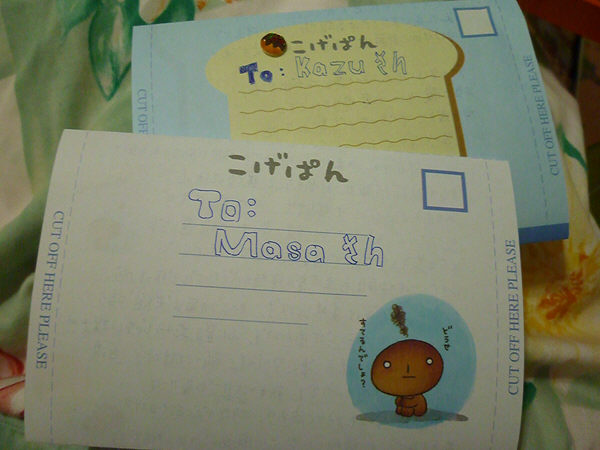 こげぱん
To: Kazu さん
CUT OFF HERE
CUT OFF HERE PLEASE
こげぱん
To:
Masa さん
CUT OFF HERE PLEASE
CUT OFF HERE PLEASE
どうせ
すてるんでしょ?